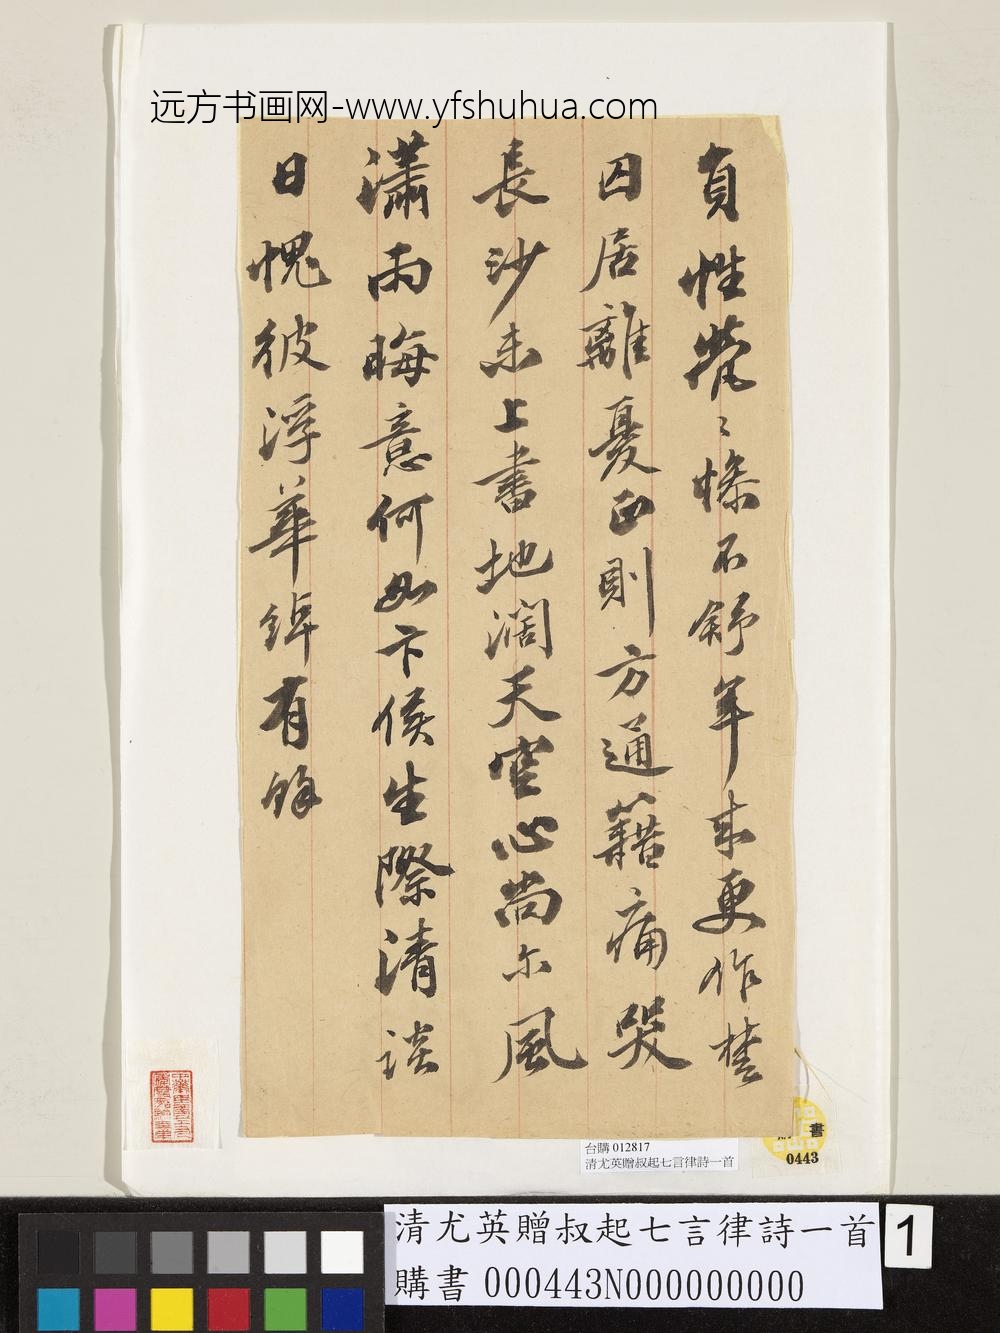 远方书画网-www.yfshuhua.com
負性煢〻慘不舒年來更作楚
囚居離憂正則方通籍痛哭
長沙未上書地闊天空心尚尔風
瀟雨晦意何如卞侯生際清談
日愧彼浮華綽有餘
台購 012817
清尤英贈叔起七言律詩一首
書
0443
清尤英贈叔起七言律詩一首
購書 000443N000000000
1